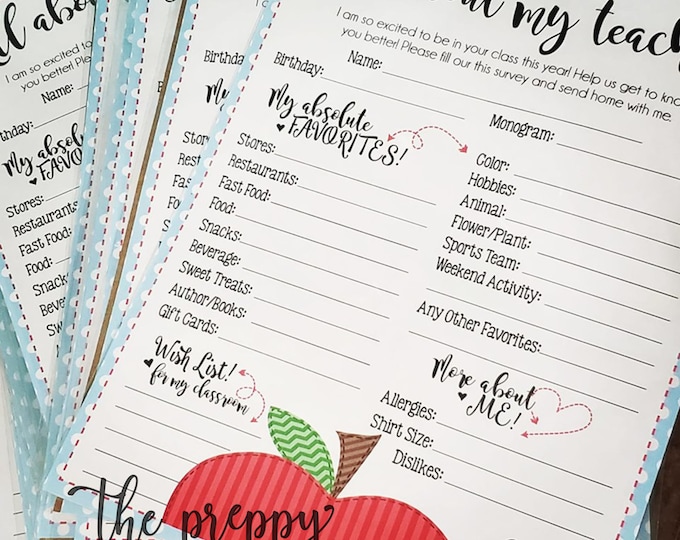 my teach
I am so excited to be in your class this year! Help us get to know
you better! Please fill our this survey and send home with me.
Birthday:
Name:
Monogram:
My absolute
FAVORITES!
Stores:
Restaurants:
Fast Food:
Food:
Snacks:
Beverage:
Sweet Treats:
Author/Books:
Gift Cards:
Color:
Hobbies:
Animal:
Flower/Plant:
Sports Team:
Weekend Activity:
Any Other Favorites:
Wish List!
for my classroom
More about
ME!
Allergies:
Shirt Size:
Dislikes:
the preppy
all abou
I am so excited to
you better! Ple
Name:
Birthday:
My absol
FAVOR
Stores:
Restaurants
Fast Food:
Food:
Snacks
Beverag
Sweet
Autho
Gift
I a
y
Birthday:
My
Stores:
Restau
Fast F
Food:
Sna
Be